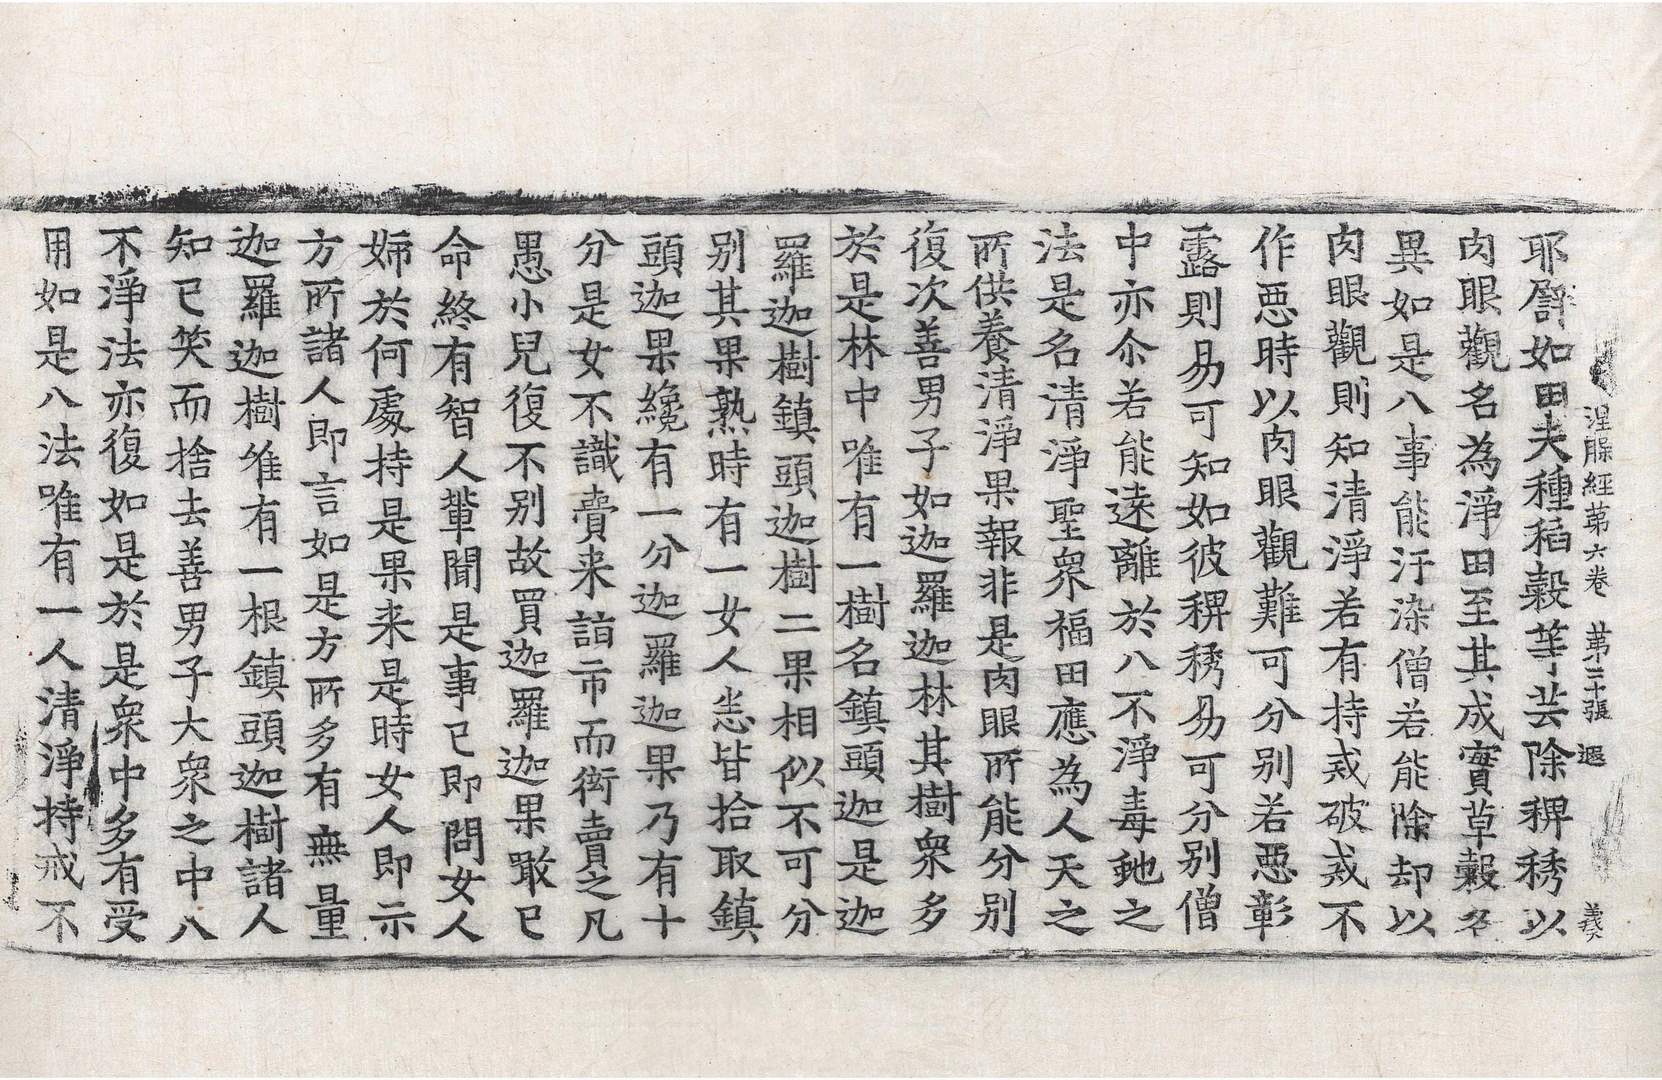 涅槃經第六卷 第二十張 遐
耶譬如田夫種稻穀等芸除稗䅎以
肉眼觀名為淨田至其成實草穀各
異如是八事能汙染僧若能除却以
肉眼觀則知清淨若有持戒破戒不
作惡時以肉眼觀難可分別若惡彰
露則易可知如彼稗䅎易可分別僧
中亦尒若能遠離於八不淨毒虵之
法是名清淨聖眾福田應為人天之
所供養清淨果報非是肉眼所能分別
復次善男子如迦羅迦林其樹眾多
於是林中唯有一樹名鎮頭迦是迦
羅迦樹鎮頭迦樹二果相似不可分
別其果熟時有一女人悉皆拾取鎮
頭迦果纔有一分迦羅迦果乃有十
分是女不識賷来詣市而衒賣之凡
愚小兒復不別故買迦羅迦果噉已
命終有智人輩聞是事已即問女人
姉於何處持是果来是時女人即示
方所諸人即言如是方所多有無量
迦羅迦樹唯有一根鎮頭迦樹諸人
知已笑而捨去善男子大眾之中八
不淨法亦復如是於是眾中多有受
用如是八法唯有一人清淨持戒不